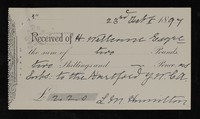 23rd Sept 1897
Received of H
the sum of two Pounds
two Shillings and — Pence
Subs. to the Hartford YMCA
£ 2.2.0